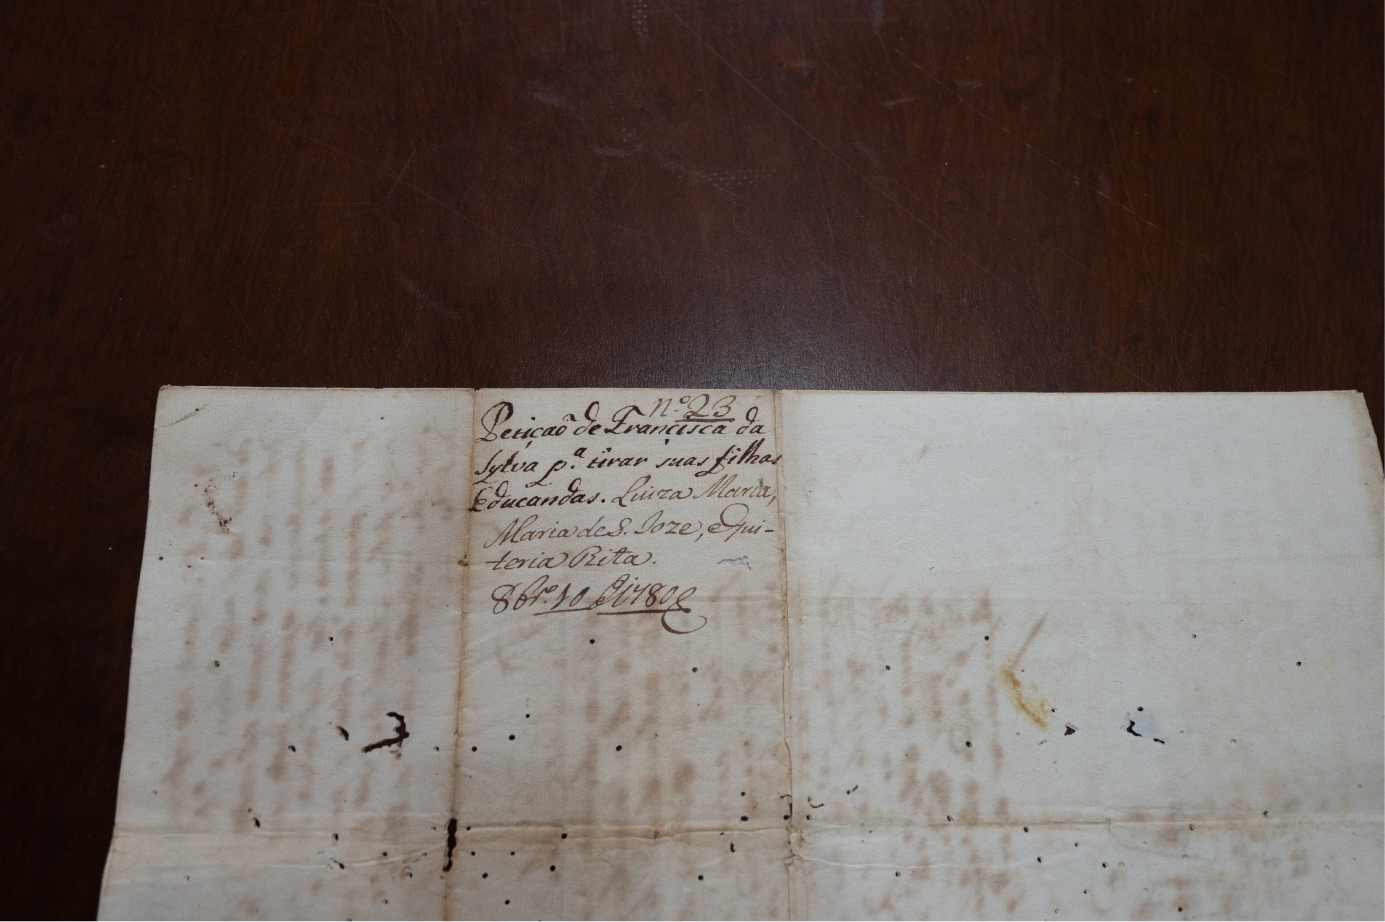 N.º 23
Petiçaõ de Francisca da
Sylva p.ª tirar suas filhas
Educandas. Luiza Maria,
Maria de S. Joze, e Qui-
teria Rita.
8br.º 10 de 1780